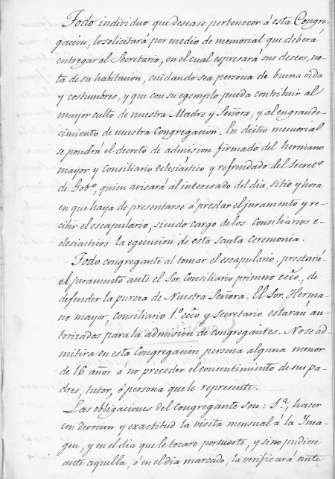 Todo individuo que desease pertenecer á esta Congre-
gacion, lo solicitará por medio de memorial que deberá
entregar al Secretario, en el cual espresará sus deseos, no-
ta de su habitacion, cuidando sea persona de buena vida
y costumbres, y que con su egemplo pueda contribuir al
mayor culto de nuestra Madre y Señora, y al engrande-
cimiento de nuestra Congregacion. En dicho memorial
se pondrá el decreto de admision firmado del hermano
mayor y Consiliario eclesiástico y refrendado del Secretº
de Gobº, quien avisará al interesado del dia, sitio y hora
en que haya de presentarse á prestar el juramento y reci-
bir el escapulario, siendo cargo de los Consiliarios e-
clesiasticos la egecucion de esta santa ceremonia.
Todo congregante al tomar el escapulario, prestará
el juramento ante el Sor. Consiliario primero eccº, de
defender la pureza de Nuestra Señora. El Sor. Herma-
no mayor, consiliario 1º eccº y Secretario estarán au-
torizados para la admision de congregantes. No se ad-
mitirá en esta Congregacion persona alguna menor
de 16 años á no preceder el consentimiento de sus pa-
dres, tutor, ó persona que le represente.
Las obligaciones del Congregante son: 1ª, hacer
con devocion y exactitud la visita mensual á la Ima-
gen, y en el dia que le tocare por suerte, y sino pudien-
do en aquella, ó en el dia marcado, la verificará ante